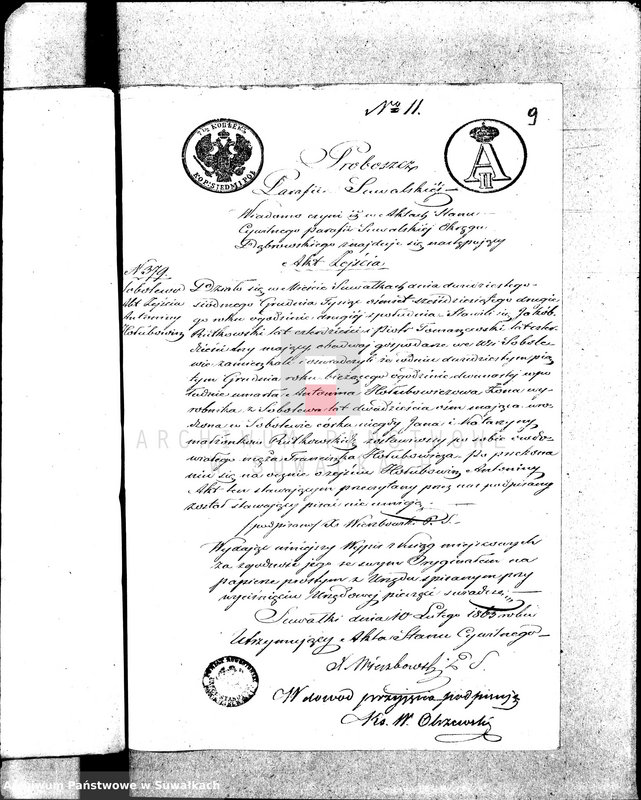 No 11.
9
7½ KOPIEJEK
KOP: SIEDM I PÓŁ
A II
Proboszcz
Parafii Suwalskiéj
Wiadomo czyni iż w Aktach Stanu
Cywilnego parafii Suwalskiéj Okręgu
Dąbrowskiego znajduje się następujący
Akt Zejścia
N 379
Sobolewo
Akt Zejścia
Antoniny
Hołubowicz
Działo się w Mieście Suwałkach dnia dwudziestego
siódmego Grudnia Tysiąc ośmset sześćdziesiątego drugie
go roku o godzinie drugiéj społudnia Stawili się Jakób
Rutkowski lat czterdzieści i Piotr Tomaszewski lat czter
dzieści mający, obadwaj gospodarze we Wsi Sobole
wie zamieszkali i oświadczyli że w dniu dwudziestym pią
tym Grudnia roku bieżącego o godzinie dwunastéj w po
łudnie umarła Antonina Hołubowiczowa Żona wy
robnika z Sobolewa lat dwadzieścia osm mająca uro
dzona w Sobolewie córka niegdy Jana i Katarzyny
małżonków Rutkowskich zostawiwszy po sobie owdo
wiałego męża Franciszka Hołubowicza. Po przekona
niu się naocznie o zejściu Hołubowicz Antoniny
Akt ten stawającym przeczytany przez nas podpisany
został stawający pisać nie umieją.
(podpisany X. Wierzbowski P. S.
Wydając niniejszy Wypis z ksiąg miejscowych
za zgodność jego ze swym Oryginałem na
papierze prostym z Urzędu spisanym przy
wyciśnięciu Urzędowéj pieczęci świadczę
Suwałki dnia 10 Lutego 1863 roku
Utrzymujący Akta Stanu Cywilnego
X Wierzbowski P. S.
W dowód przyjęcia podpisuję
Ks. W. Olszewski
ARCHIWUM PAŃSTWOWE
W SUWAŁKACH
Archiwum Państwowe w Suwałkach